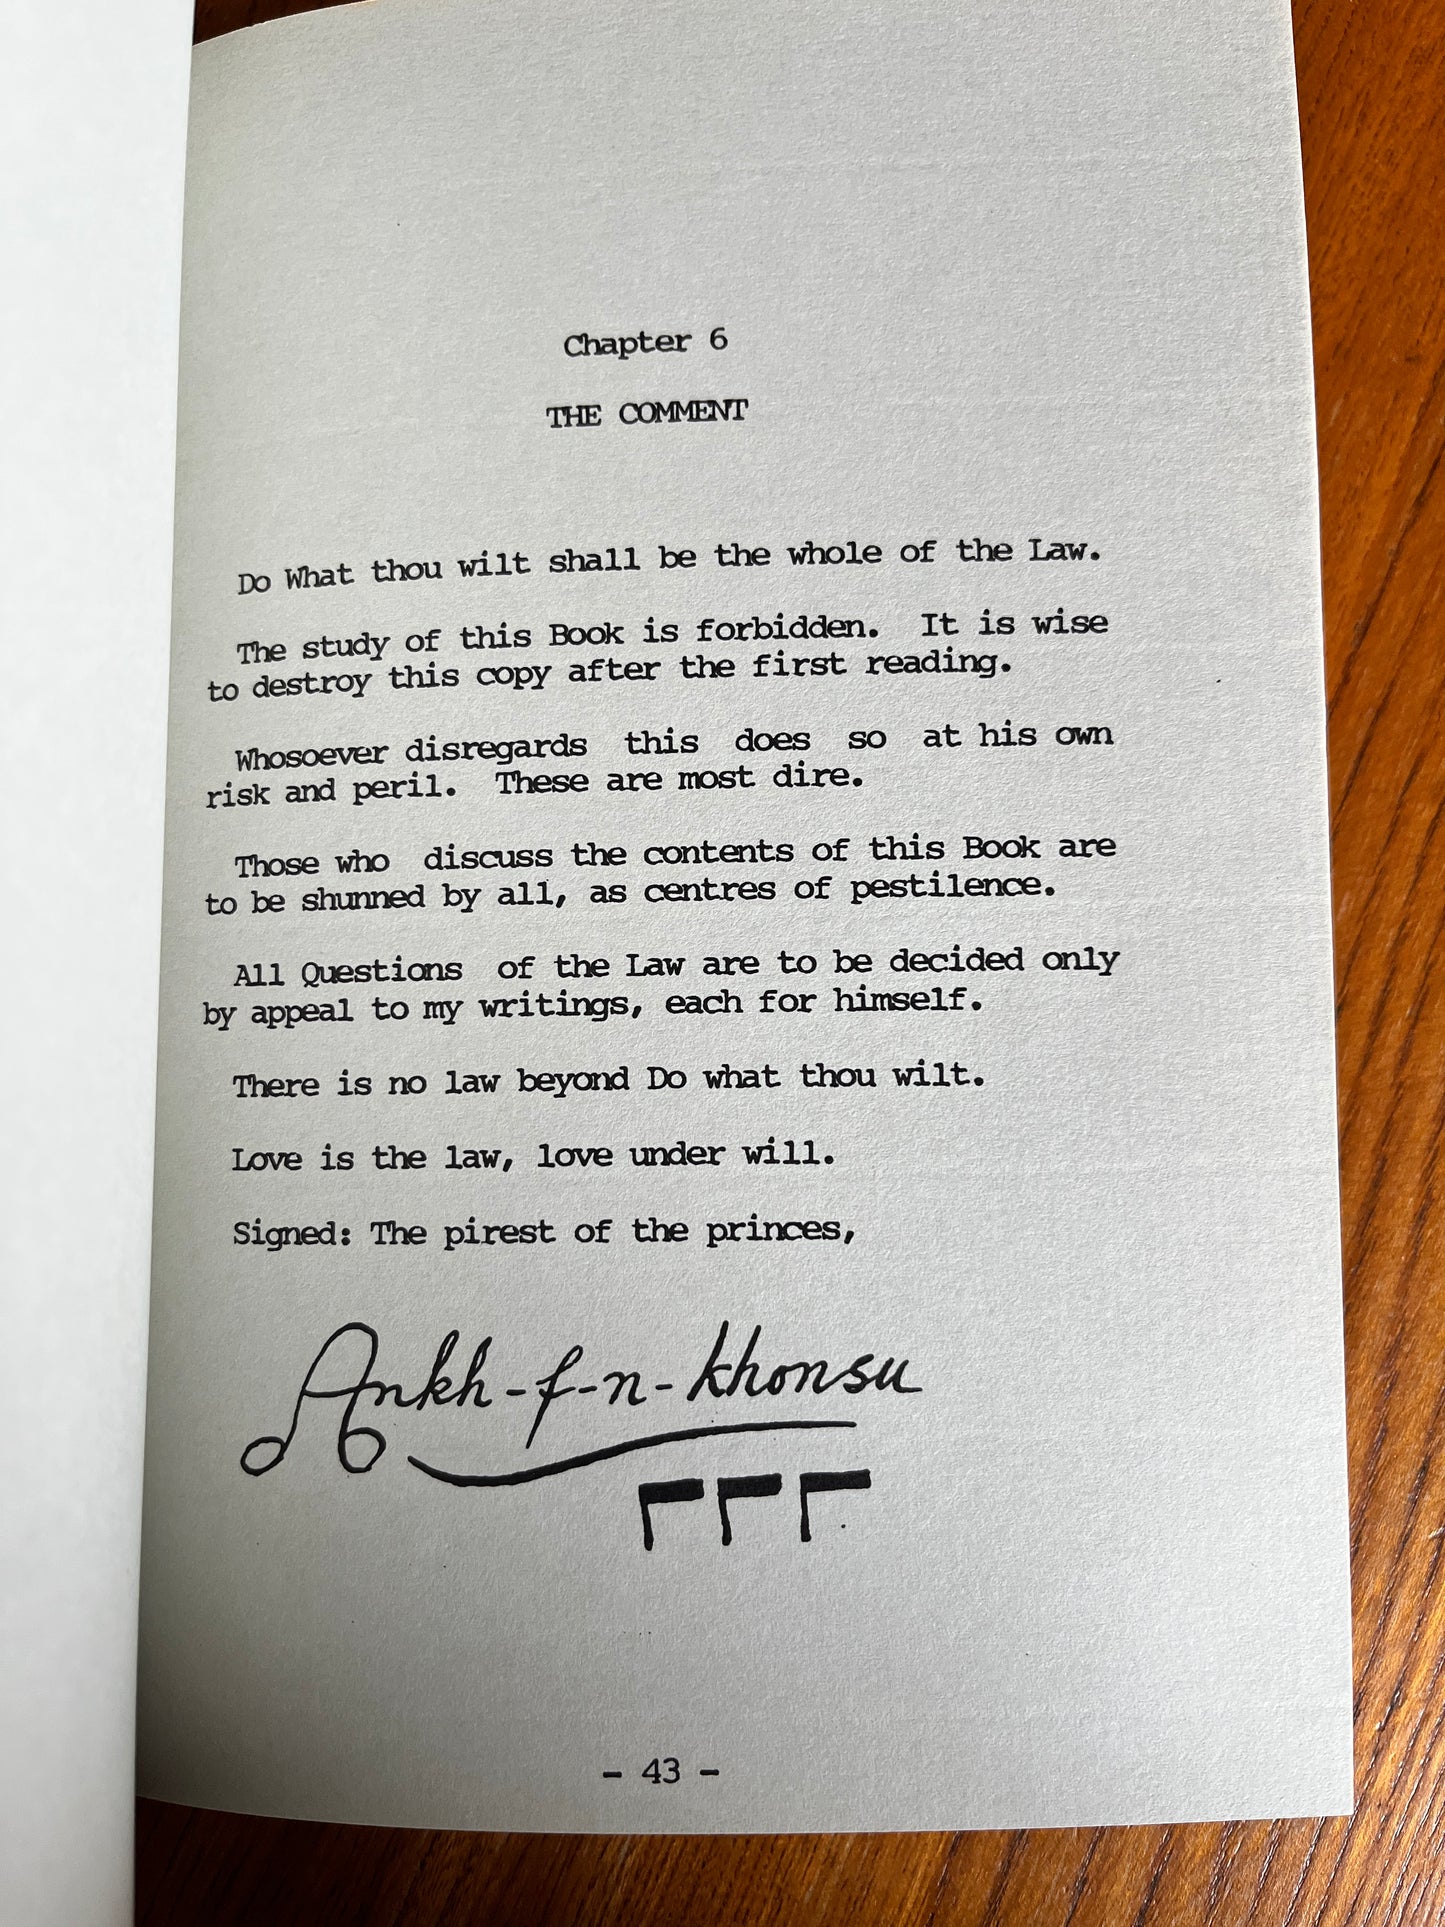 Chapter 6
THE COMMENT
Do What thou wilt shall be the whole of the Law.
The study of this Book is forbidden. It is wise
to destroy this copy after the first reading.
Whosoever disregards this does so at his own
risk and peril. These are most dire.
Those who discuss the contents of this Book are
to be shunned by all, as centres of pestilence.
All Questions of the Law are to be decided only
by appeal to my writings, each for himself.
There is no law beyond Do what thou wilt.
Love is the law, love under will.
Signed: The pirest of the princes,
Ankh-f-n-khonsu
- 43 -